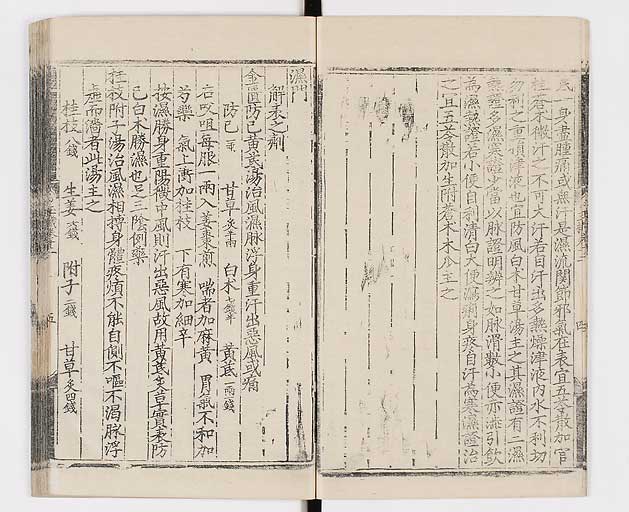 底一身盡腫痛或無汗是濕流關節邪氣在表宜五苓散加官
桂蒼朮微汗之不可大汗若自汗出多熱燥津液內水不利切
勿利之重損津液也宜防風白朮甘草湯主之其濕證有二濕
熱證多濕寒證少當以脉證明辨之如脉滑數小便赤澁引飲
為濕熱證若小便自利清白大便瀉痢身疼自汗為寒濕證治
之宜五苓散加生附蒼朮木瓜主之
四
濕門
解表之劑
金匱防已黃芪湯治風濕脉浮身重汗出惡風或痛
防已一兩 甘草炙半兩 白朮七錢半 黃芪一兩一錢
右㕮咀每服一兩入姜棗煎 喘者加麻黃 胃氣不和加
芍藥 氣上衝加桂枝 下有寒加細辛
按濕勝身重陽微中風則汗出惡風故用黃芪炙草實表防
已白朮勝濕也已上三陰例藥
桂枝附子湯治風濕相搏身體疼煩不能自側不嘔不渴脉浮
虛而濇者此湯主之
桂枝八錢 生姜六錢 附子三錢 甘草炙四錢
五